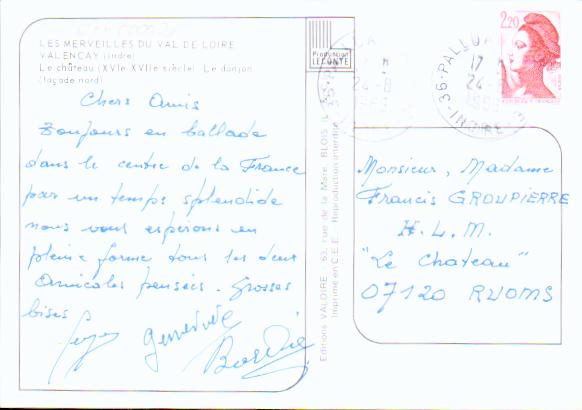 LES MERVEILLES DU VAL DE LOIRE
VALENCAY (Indre)
Le château (XVIe-XVIIe siècle) Le donjon
(façade nord)
Chers Amis
Toujours en ballade
dans le centre de la France
par un temps splendide
nous vous espérons en
pleine forme tous les deux
Amicales pensées. Grosses
bises
Geneviève
Production
LECONTE
Editions VALOIRE - 63, rue de la Mare, BLOIS
Imprimé en C.E.E. Reproduction interdite
36-PALLUAU
INDRE
17 H
24-8
2,20
Monsieur, Madame
Francis GROUPIERRE
H.L.M.
"Le Chateau"
07120 RUOMS